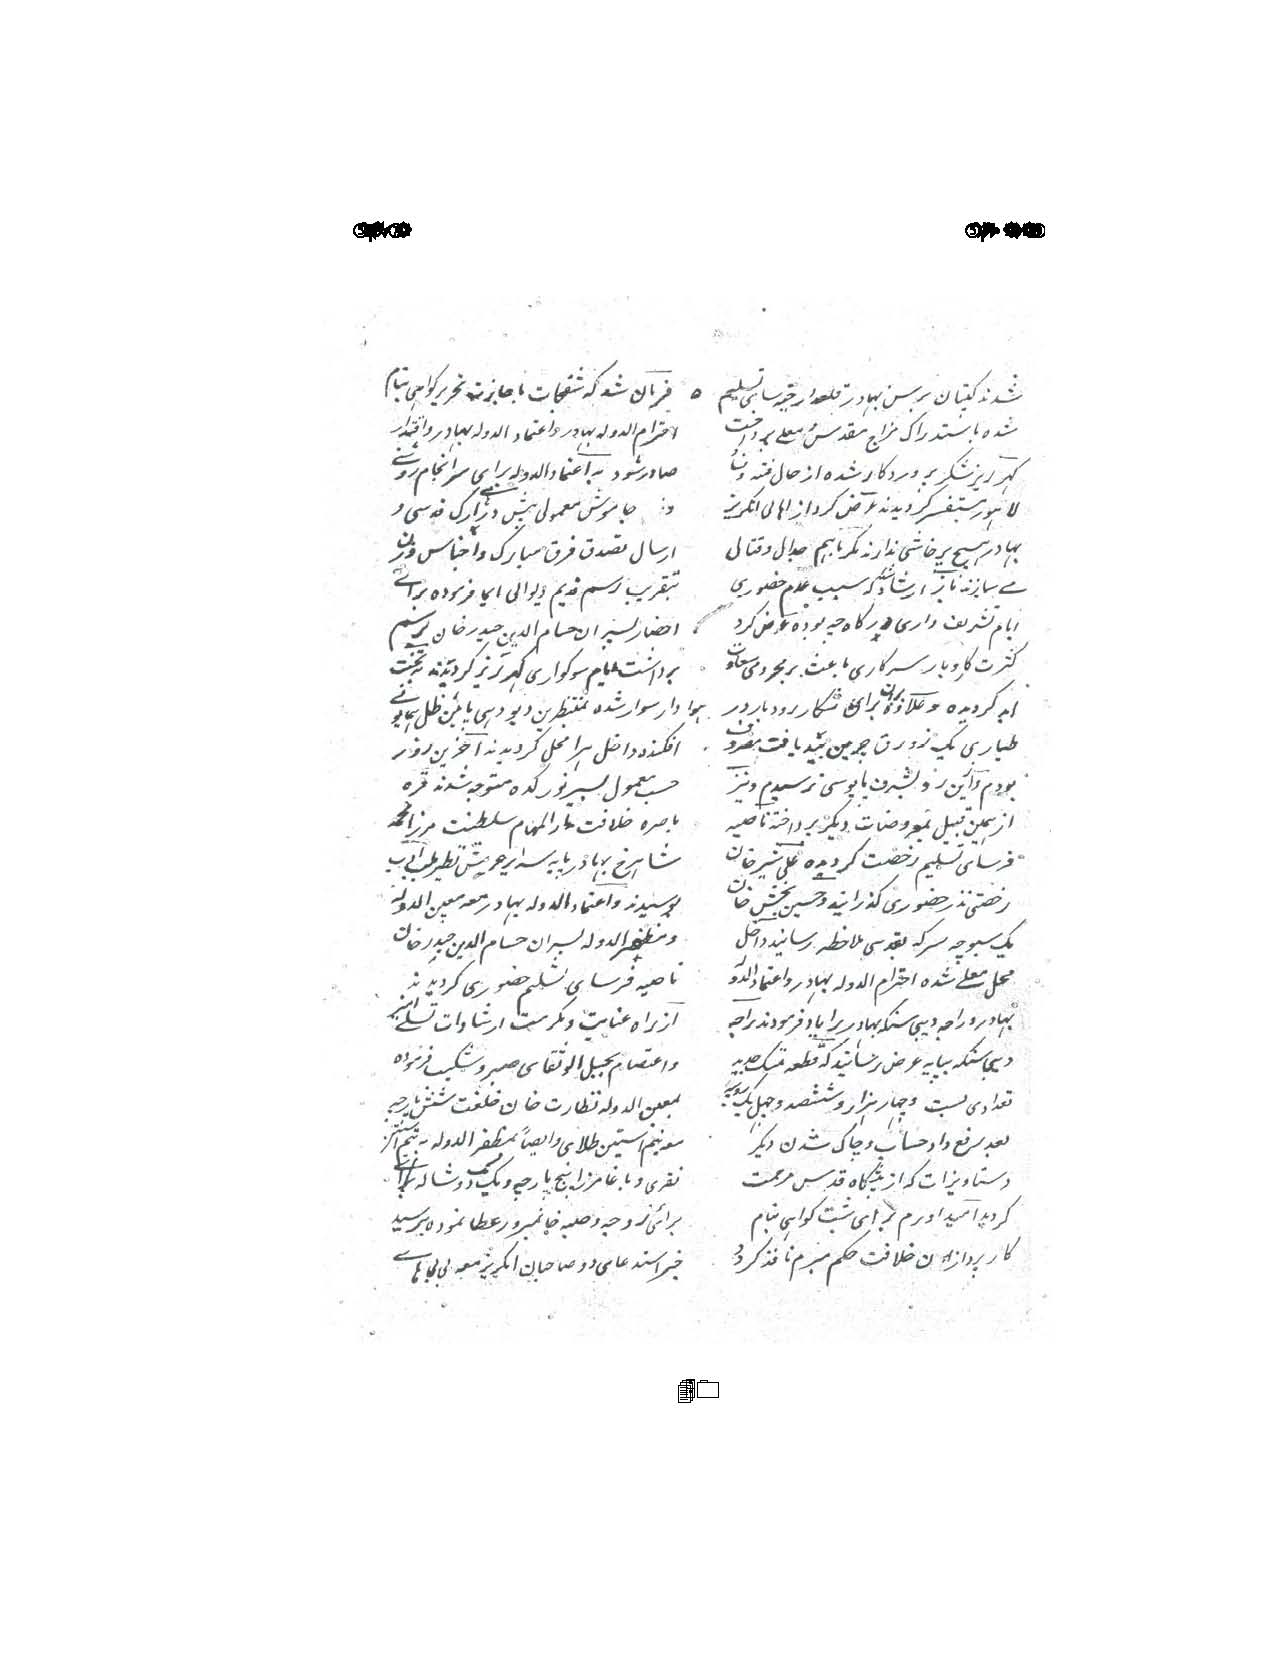 شدند کپتان بربس بهادر قلعدار جبه سای تسلیم
شده باستدراک مزاج مقدس و معلی پرداخت
گهر ریز شکر پروردگار شده از حال فتنه
لاهور مستفسر گردیدند عرض کرد از اهالی انگریز
بهادر هیچ پرخاشی ندارند مگر باهم جدال و قتالی
مے سازند باز ارشاد شد که سبب عدم حضوری
ایام تشریف داری درگاه چه بوده عرض کرد
کثرت کاروبار سرکاری باعث بر محرومی سعادت
ابد گردیده و علاوه بران برای شکار رود بار در
طیاری یک زورق مصروف
بودم و این روز بشرف پابوسی نرسیدم و نیز
از همین قبیل بمعروضات دیگر پرداخته ناصیه
فرسای تسلیم رخصت گردیده علی شیر خان
رخصتی نذر حضوری گذرانید و حسین بخش خان
یک سبوچه سرکه بقدسی ملاحظه رسانید داخل
محل معلے شده احترام الدوله بهادر و اعتماد الدوله
بهادر و راجه دیبی سنگه بهادر را یاد فرمودند راجه
دیبی سنگه بپایه عرض رسانید که قطعه تمسک جدید
تعدادی بست و چهار هزار و ششصد و چهل یک روپیه
بعد رفع داد حساب و چاک شدن دیگر
دستاویزات که از پیشگاه قدس مرحمت
گردید آمید اورم برای ثبت گواهی بنام
کارپردازان خلافت حکم مبرم نافذ گردد
فرمان شد که شقجات باجازت تحریر گواهی بنام
احترام الدوله بهادر و اعتماد الدوله بهادر واقتدار
صادر شود به اعتماد الدوله برای سرانجام
جاموش معمولی پیش و تارک قدسی و
ارسال تصدق فرق مبارک و اجناس وزن
بتقریب رسم قدیم دیوالی ایما فرموده برائے
احضار پسران حسام الدین حیدر خان برسم
برداشت ایام سوگواری گهر ریز گردیدند به تخت
هوا دار سوار شده بمنتظرین دیودهی پائین ظل همایونے
افکنده داخل سرا محل گردیدند آخرین روز
حسب معمول بسیر نور کده متوجه شدند قره
باصره خلافت مدار المهام سلطنت مرزا محمد
شاهرخ بهادر پایه سریر عرش نظیر بلب ادب
بوسیدند و اعتماد الدوله بهادر معه معین الدوله
و مظفر الدوله پسران حسام الدین حیدر خان
ناصیه فرسای تسلیم حضوری گردیدند
از براه عنایت و مکرمت ارشادات تسلے آمیز
واعتصام بحبل الوثقای صبر و شکیب فرموده
بمعین الدوله نظارت خان خلعت شش پارچه
معه نیم استین طلائی وایضاً بمظفر الدوله به نیم استین
نقری و باغا مرزا پنج پارچه و یک دوشاله
برائی زوجه وصیه عطا نموده پرسید
خبر استدعای دو صاحبان انگریز معه بی بی هائے